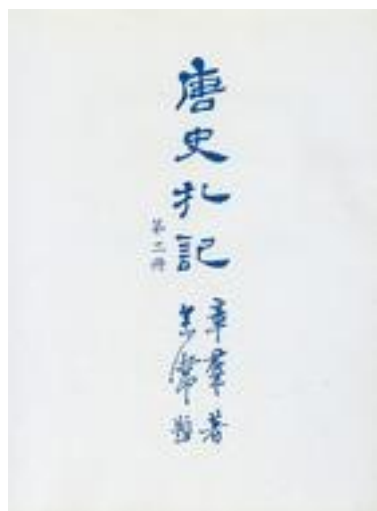 唐史札記
第二冊
章羣著
題